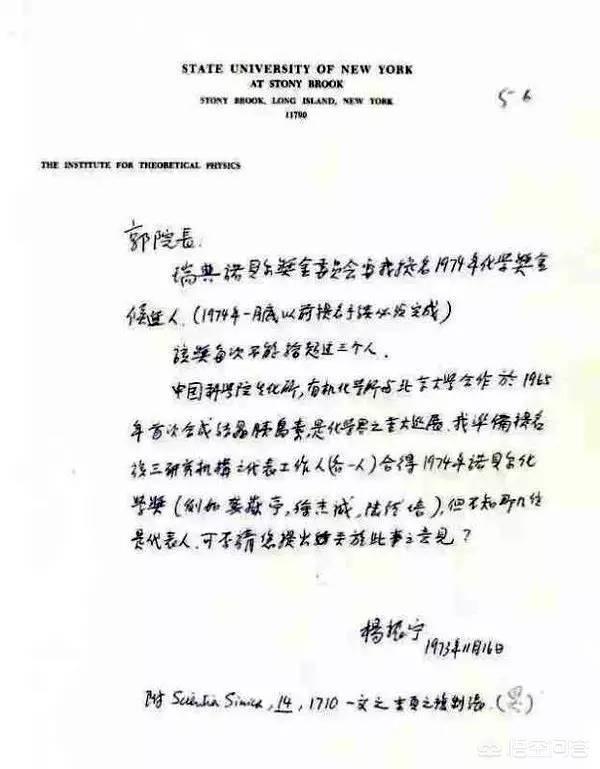 STATE UNIVERSITY OF NEW YORK
AT STONY BROOK
STONY BROOK, LONG ISLAND, NEW YORK
11790
56
THE INSTITUTE FOR THEORETICAL PHYSICS
郭院長,
瑞典諾貝尔奨金委員会要我提名1974年化学奨金
候選人.(1974年一月底以前提名手续必须完成)
該奨每次不能給超过三个人.
中国科学院生化所,有机化学所与北京大学合作於1965
年首次合成结晶胰島素,是化学界之重大进展.我準備提名
該三研究机構之代表工作人(各一人)合得1974年诺貝尔化
学奨(例如龚嶽亭,徐杰诚,陆德培),但不知那几位
是代表人.可否請您提出关於此事之意見?
楊振宁
1973年11月16日
附 Scientia Sinica, 14, 1710 一文之首頁之複制張.(略)
悟空问答